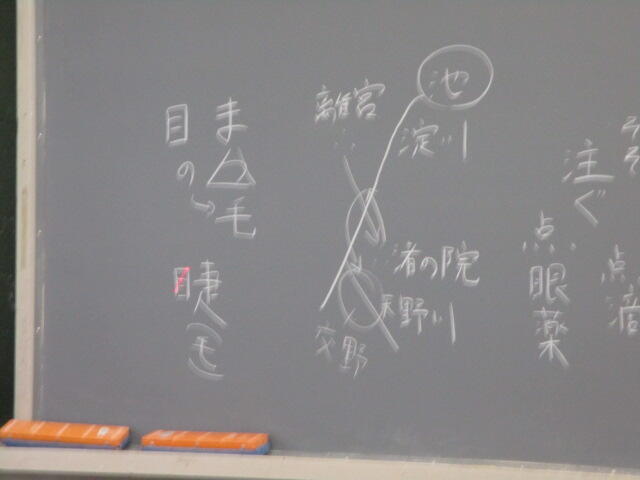 そそ
点滴
注ぐ
点眼薬
池
淀川
渚の院
天野川
離宮
交野
ま
毛
目の
睫(毛)